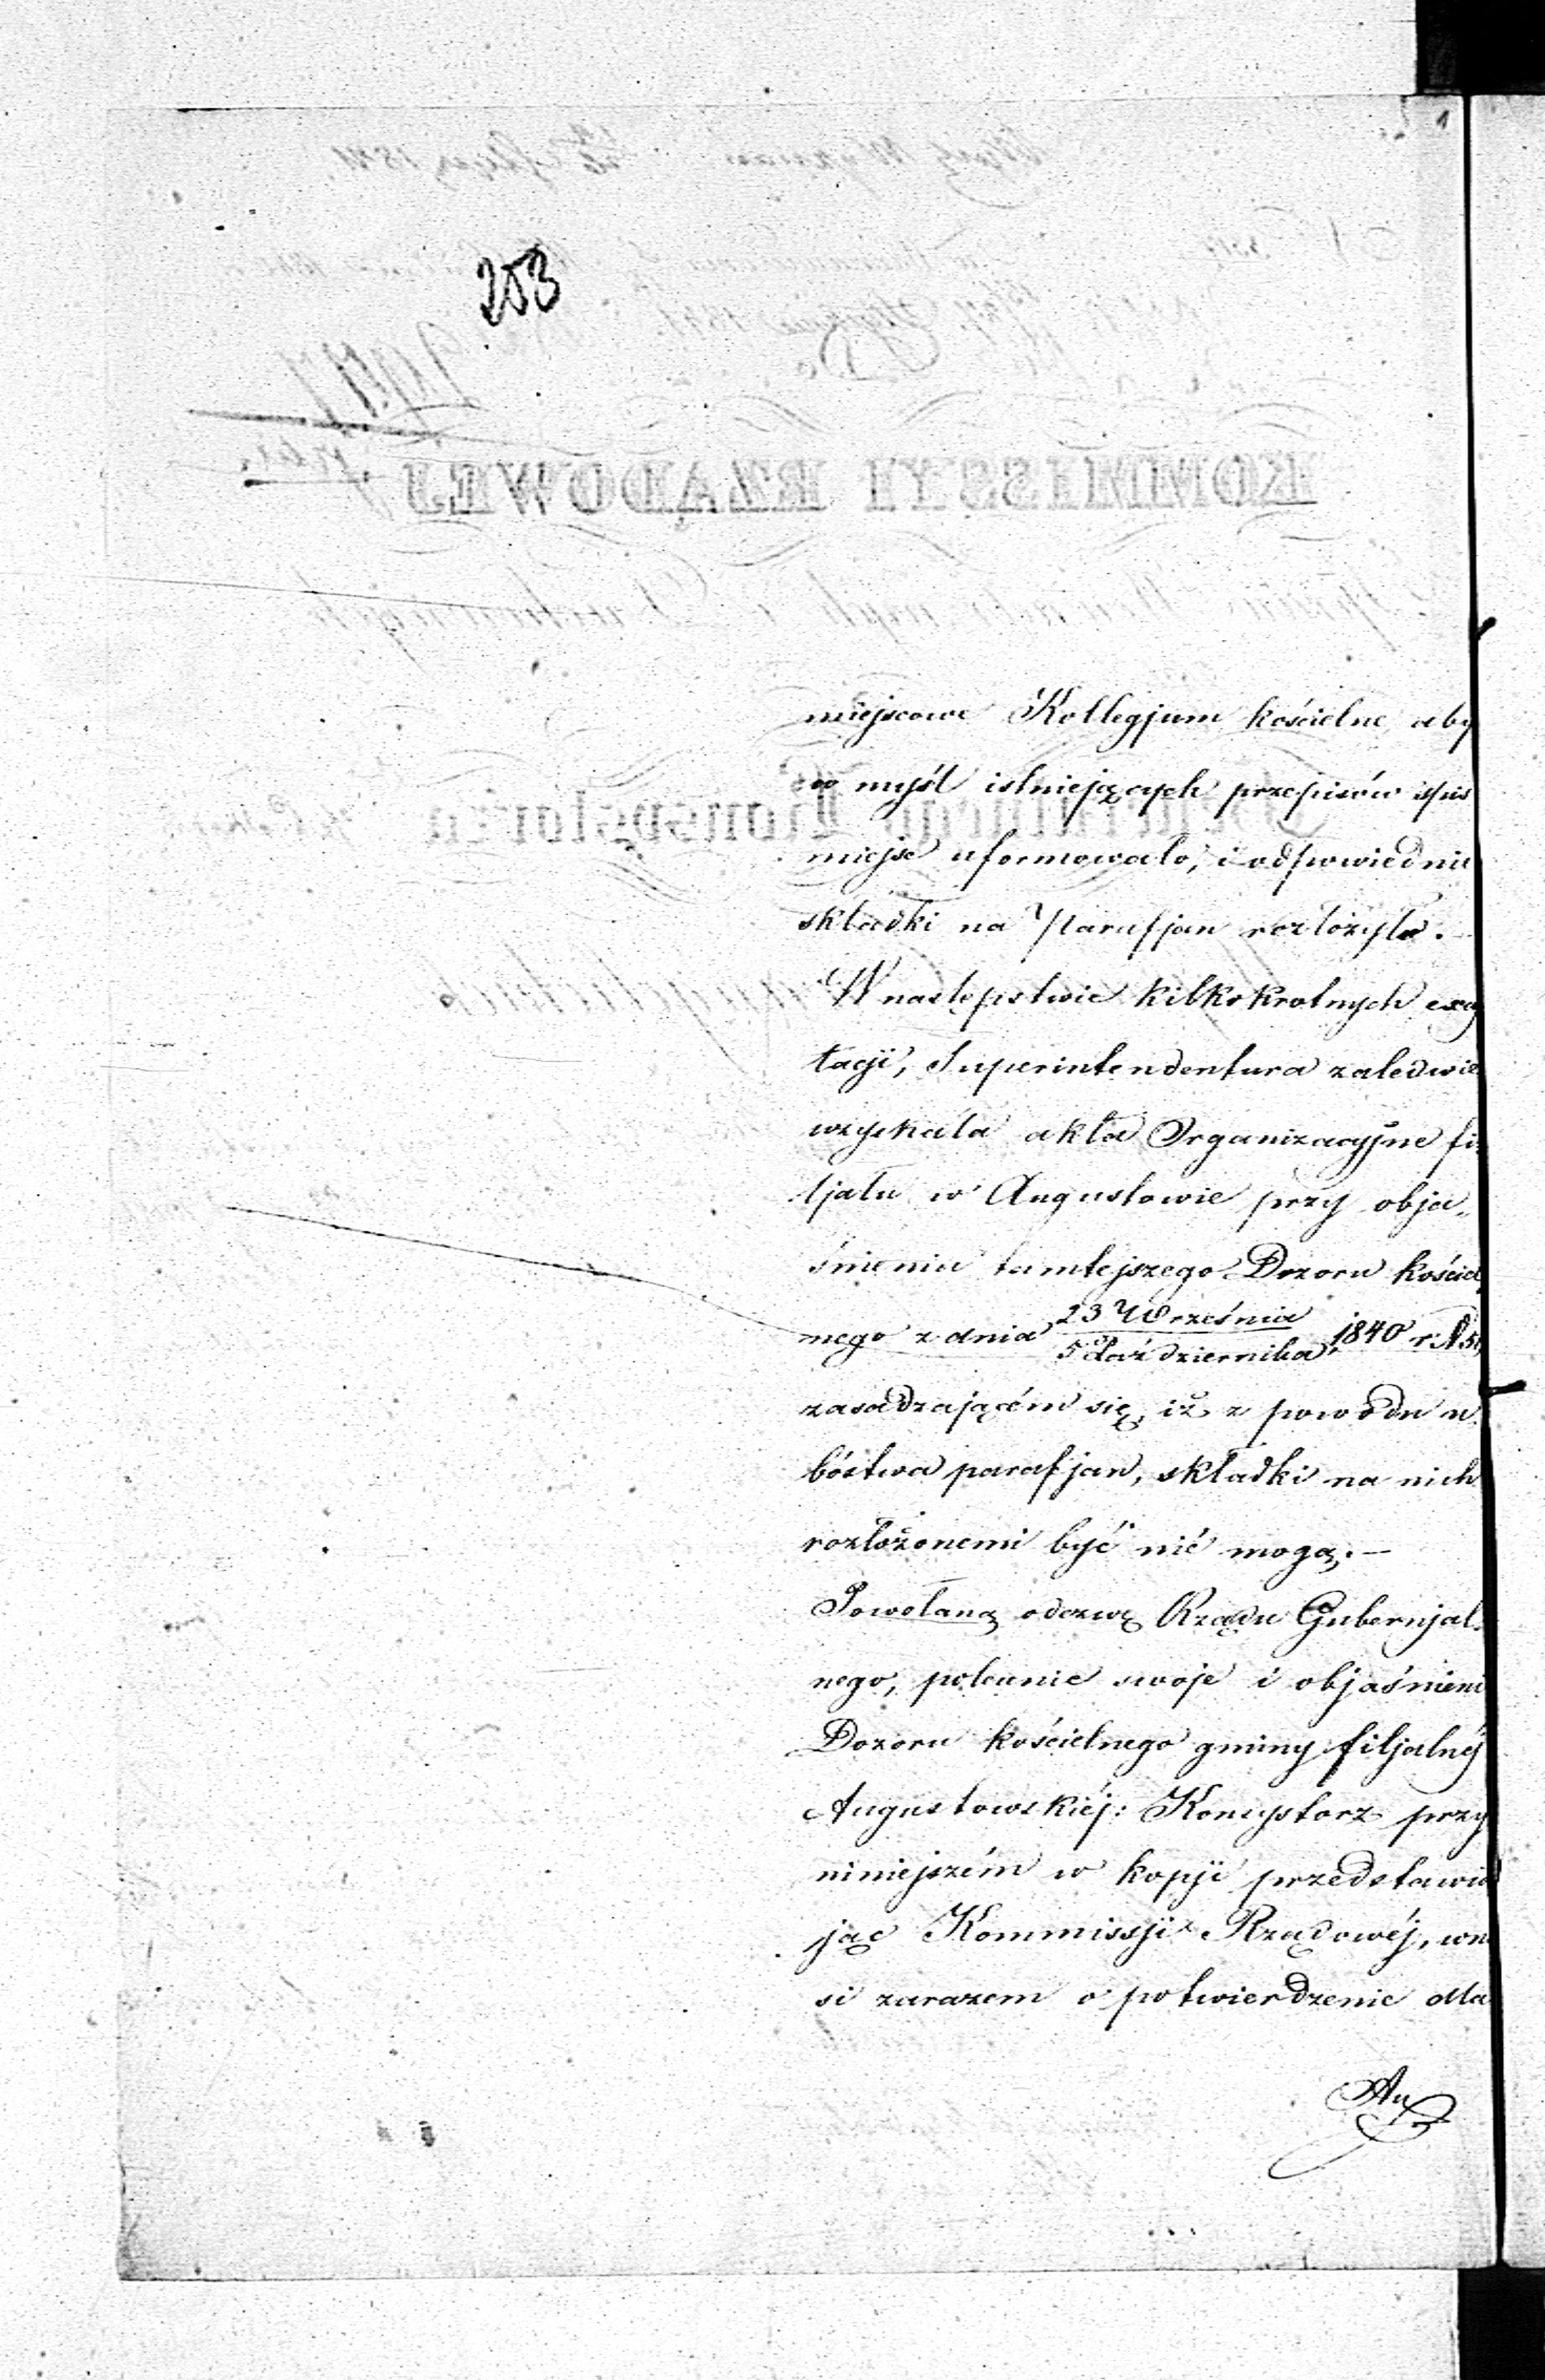 253
miejscowe Kollegjum kościelne, aby
w myśl istniejących przepisów spis
miejsc uformowało, i odpowiednie
składki na Parafjan rozłożyło.
W następstwie kilkokrotnych excy
tacji, Superintendentura zaledwie
wzyskała akta Organizacyjne fi-
ljału w Augustowie przy obja-
śnieniu tamtejszego Dozoru kościel
nego z dnia 23 Września / 5 Października 1840 r: N
zasadzającém się, iż z powodu u
bóstwa parafjan, składki na nich
rozłożonemi być nié mogą.—
Powołaną odezwę Rządu Gubernjal-
nego, polecenie swoje i objaśnieni
Dozoru kościelnego gminy filjalnéj
Augustowskiéj: Konsystorz przy
niniejszém w kopji przedstawia
jąc Kommissji Rządowéj, wno
si zarazem o potwierdzenie dla
Au